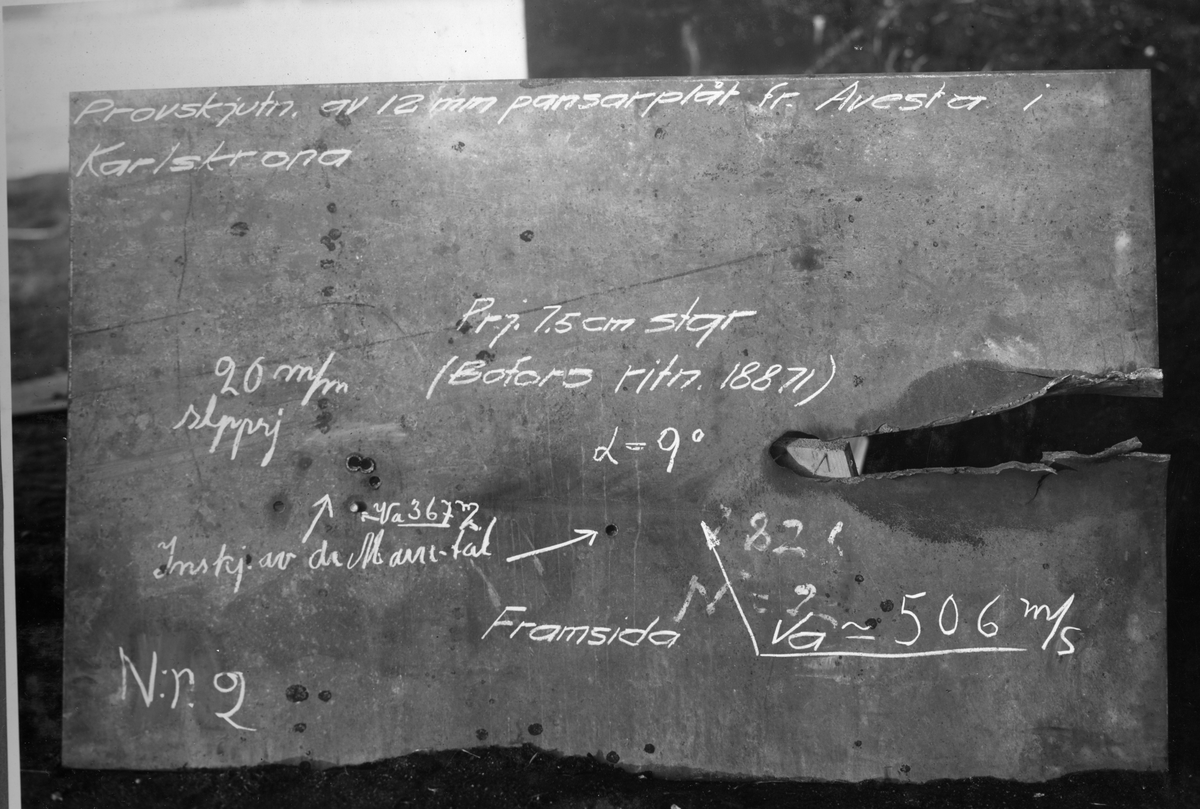 Provskjutn. av 12 mm pansarplåt fr. Avesta i
Karlskrona
Prj. 7.5 cm. stgr
(Bofors ritn. 18871)
20 m/m
slpprj
α = 9°
Va 367 m/s
Inskj. av de Marre-tal
821
N = 9
Framsida
Va ≃ 506 m/s
N:r. 2